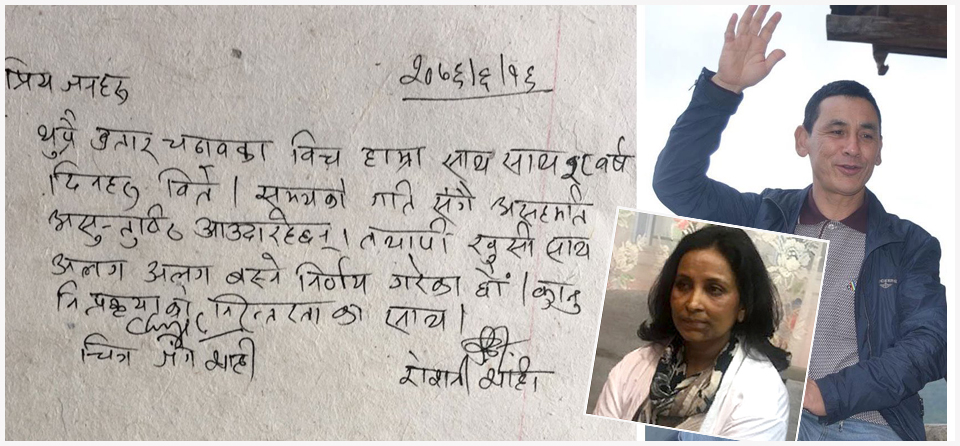 २०७६/६/१६
प्रिय जनहरु
थुप्रै उतार चढावका विच हाम्रा साथ साथ १८ वर्ष
दिनहरु विते । समयको गति संगै असहमति
असन्तुष्ठि आउदारहेछन् । तथापी खुसी साथ
अलग अलग बस्ने निर्णय गरेका छौं । कानुनी
प्रकृयाको निरन्तरताका साथ ।
चित्र जंग शाही
रोशनी शाही